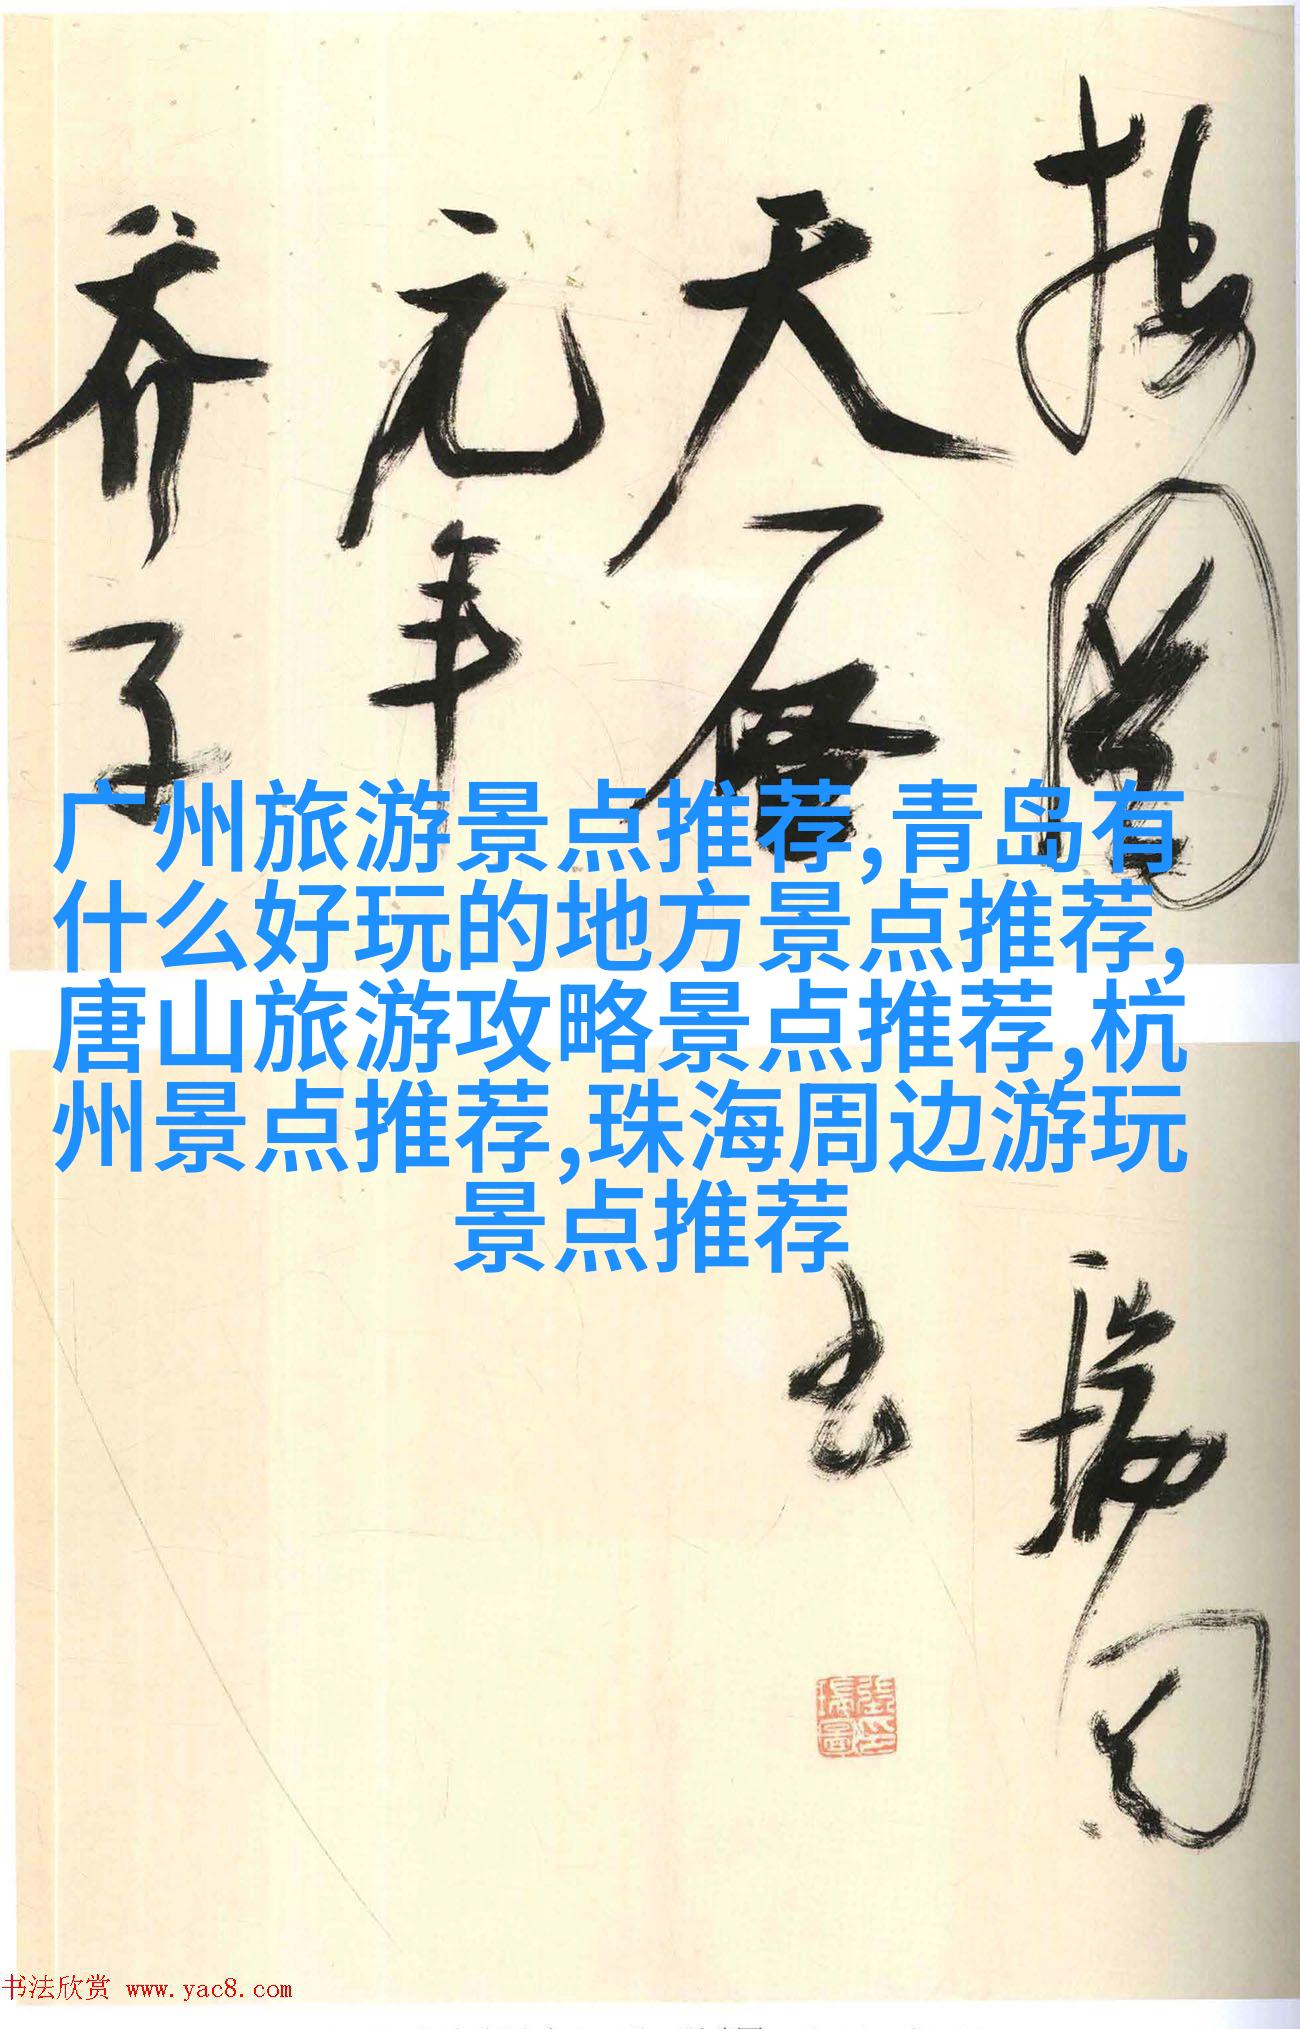 天啓
元年
广州旅游景点推荐,青岛有
什么好玩的地方景点推荐,
唐山旅游攻略景点推荐,杭
州景点推荐,珠海周边游玩
景点推荐
书法欣赏 www.yac8.com